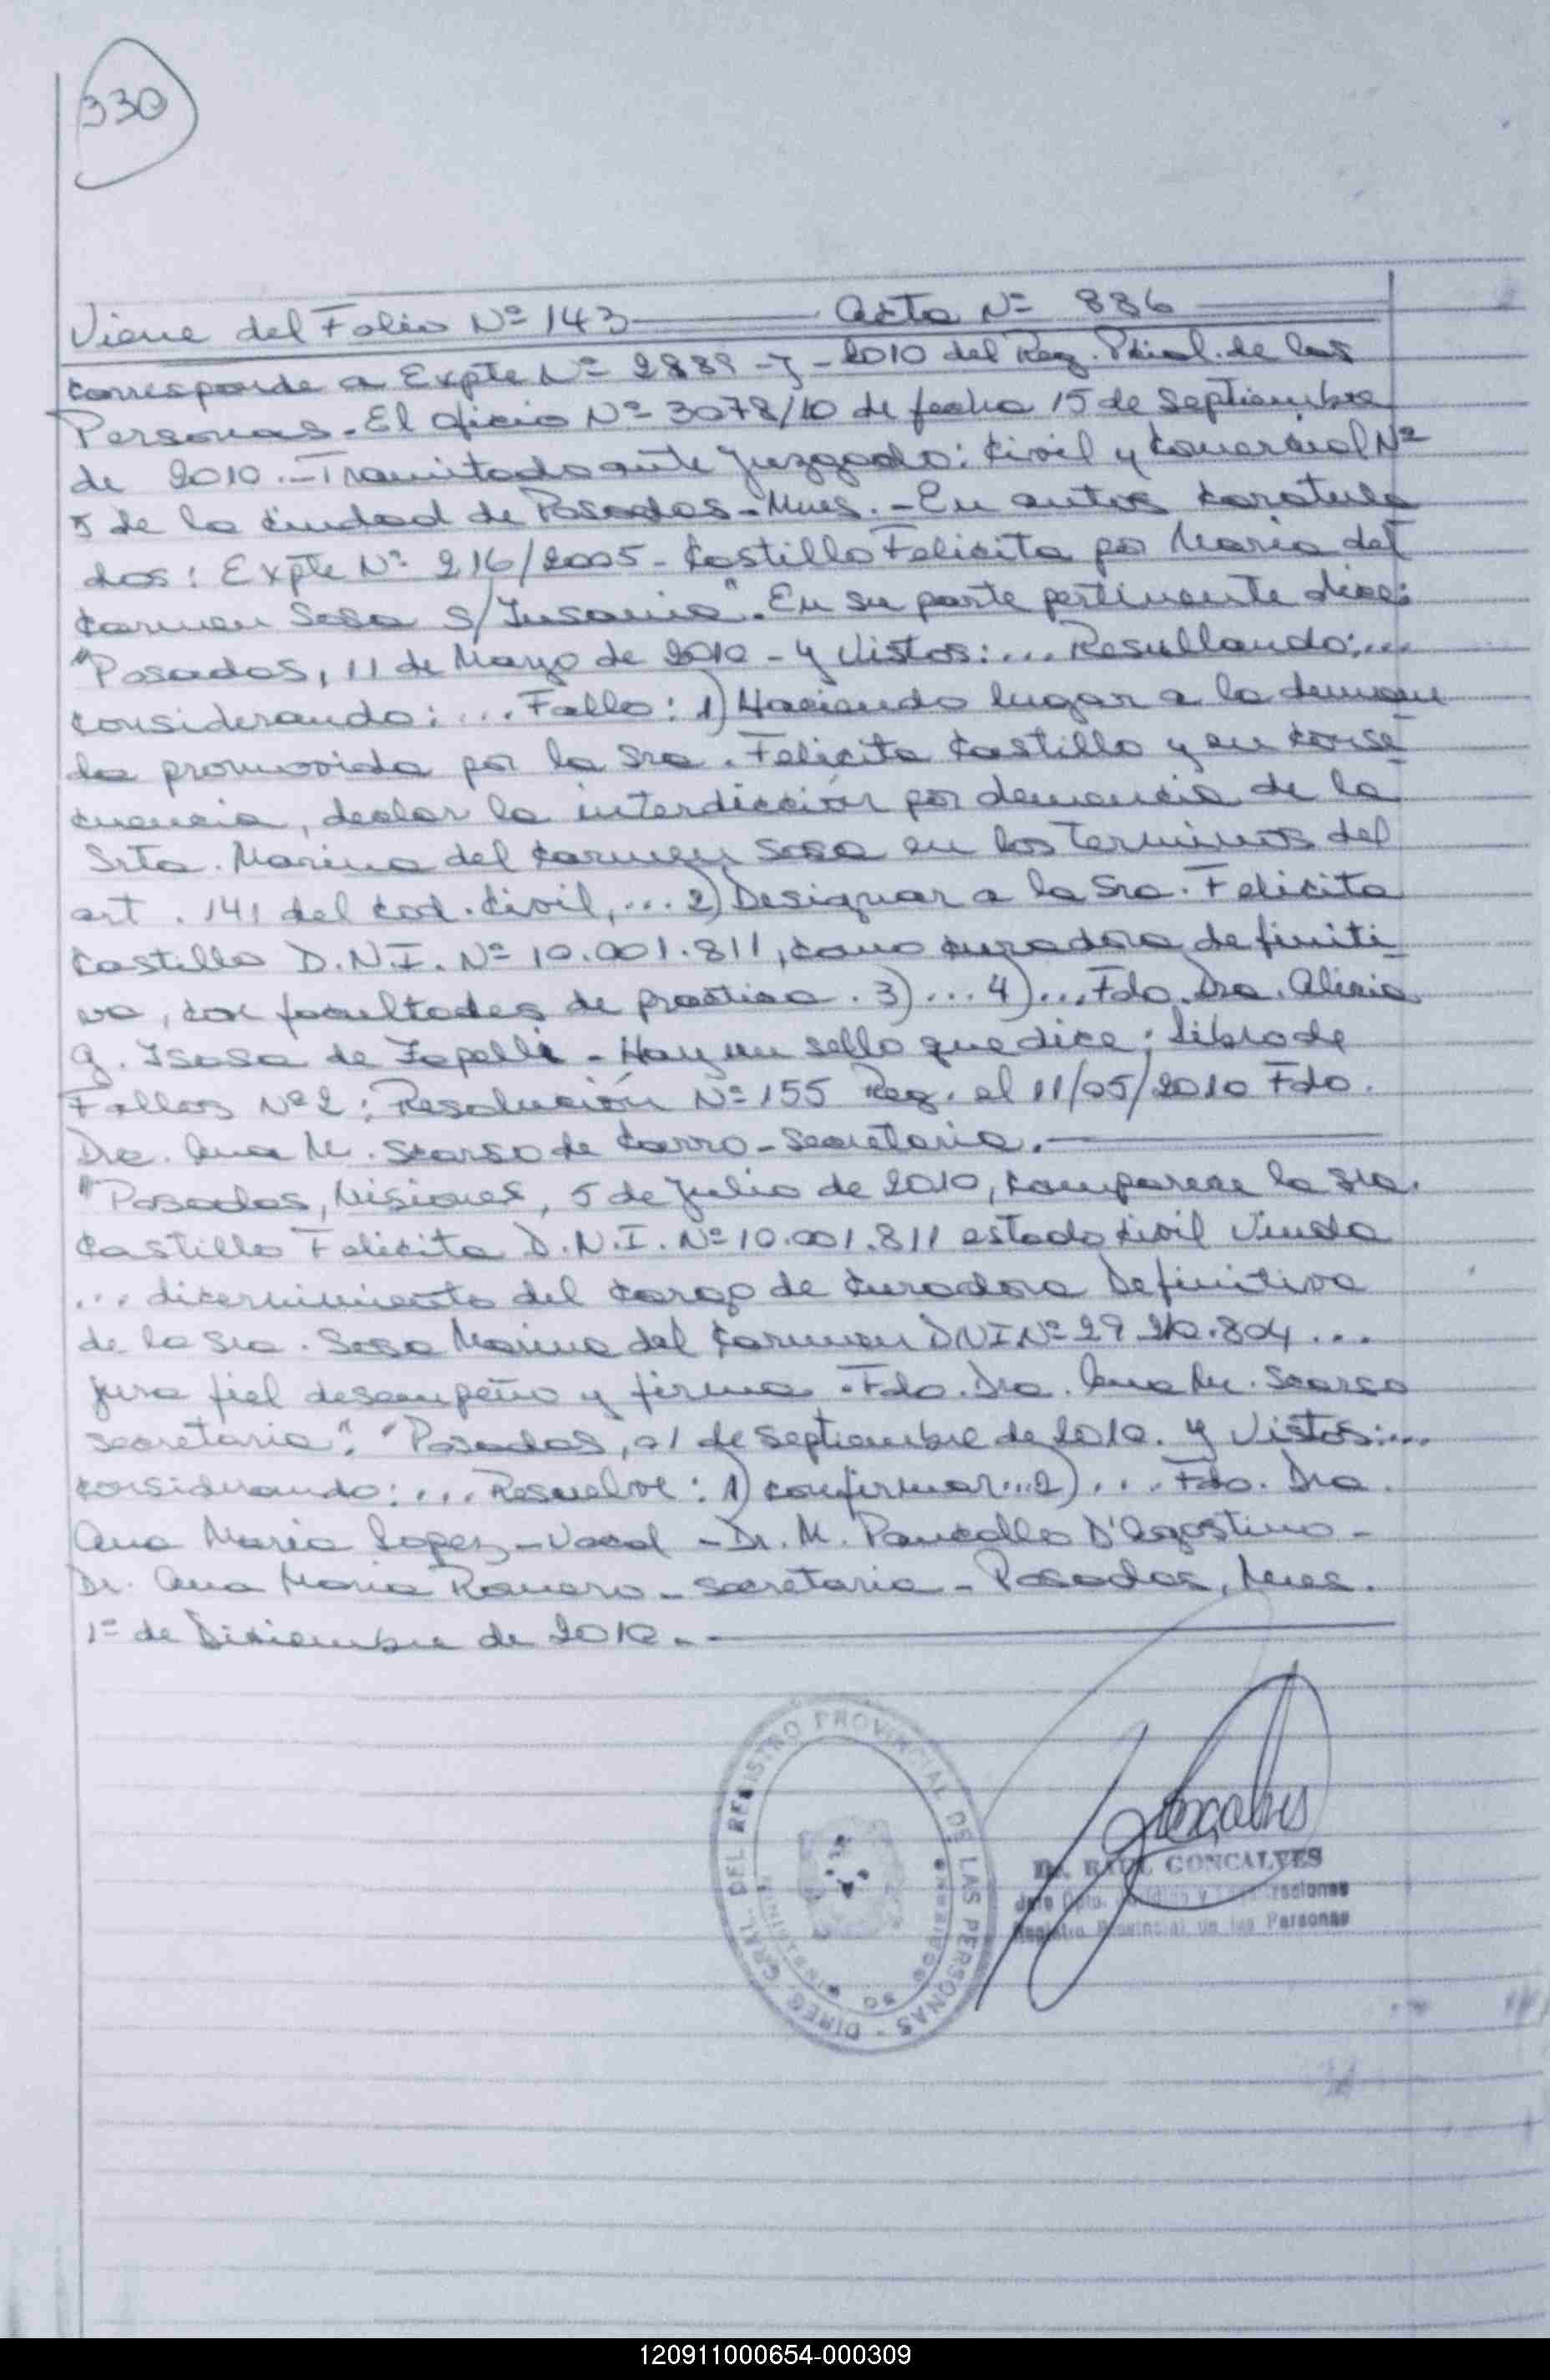 330
Viene del Folio Nº 143 — Acta Nº 886
Corresponde a Expte Nº 2889-J-2010 del Reg. Pcial. de las
Personas. El oficio Nº 3078/10 de fecha 15 de septiembre
de 2010.- Tramitado ante Juzgado: Civil y Comercial Nº
5 de la Ciudad de Posadas-Mnes.- En autos Caratula
dos: Expte Nº 216/2005- Castillo Felicita por Maria del
Carmen Sosa s/ Insania". En su parte pertinente dice:
"Posadas, 11 de Mayo de 2010 - Y Vistos:... Resultando:...
Considerando:... Fallo: 1) Haciendo lugar a la deman
da promovida por la Sra. Felicita Castillo y en conse
cuencia, declar la interdicción por demencia de la
Srta. Marina del Carmen Sosa en los terminos del
art. 141 del Cod. Civil,... 2) Designar a la Sra. Felicita
Castillo D.N.I. Nº 10.001.811, como curadora definiti
va, con facultades de practica. 3)... 4)... Fdo. Dra. Alicia
G. Isasa de - Hay un sello que dice: Libro de
Fallos Nº 2: Resolución Nº 155 Reg. el 11/05/2010 Fdo.
Dra. Ana M. Scarso de Carro - Secretaria.
"Posadas, Misiones, 5 de Julio de 2010, comparece la Sra.
Castillo Felicita D.N.I. Nº 10.001.811 estado civil Viuda
... dicernimiento del cargo de Curadora Definitiva
de la Sra. Sosa Marina del Carmen DNI Nº 29 .804 ...
jura fiel desempeño y firma. Fdo. Dra. Ana M. Scarso
secretaria". "Posadas, 01 de Septiembre de 2010. Y Vistos:...
Considerando:... Resuelve: 1) confirmar... 2)... Fdo. Dra.
Ana Maria Lopez - Vocal - Dr. M. D'Agostino -
Dr. Ana Maria Romero - secretaria - Posadas, Mnes.
1º de Diciembre de 2010.-
DIREC. GRAL. DEL REGISTRO PROVINCIAL DE LAS PERSONAS
Dr. RAUL GONCALVES
Jefe Dpto.
Registro Provincial de las Personas
120911000654-000309